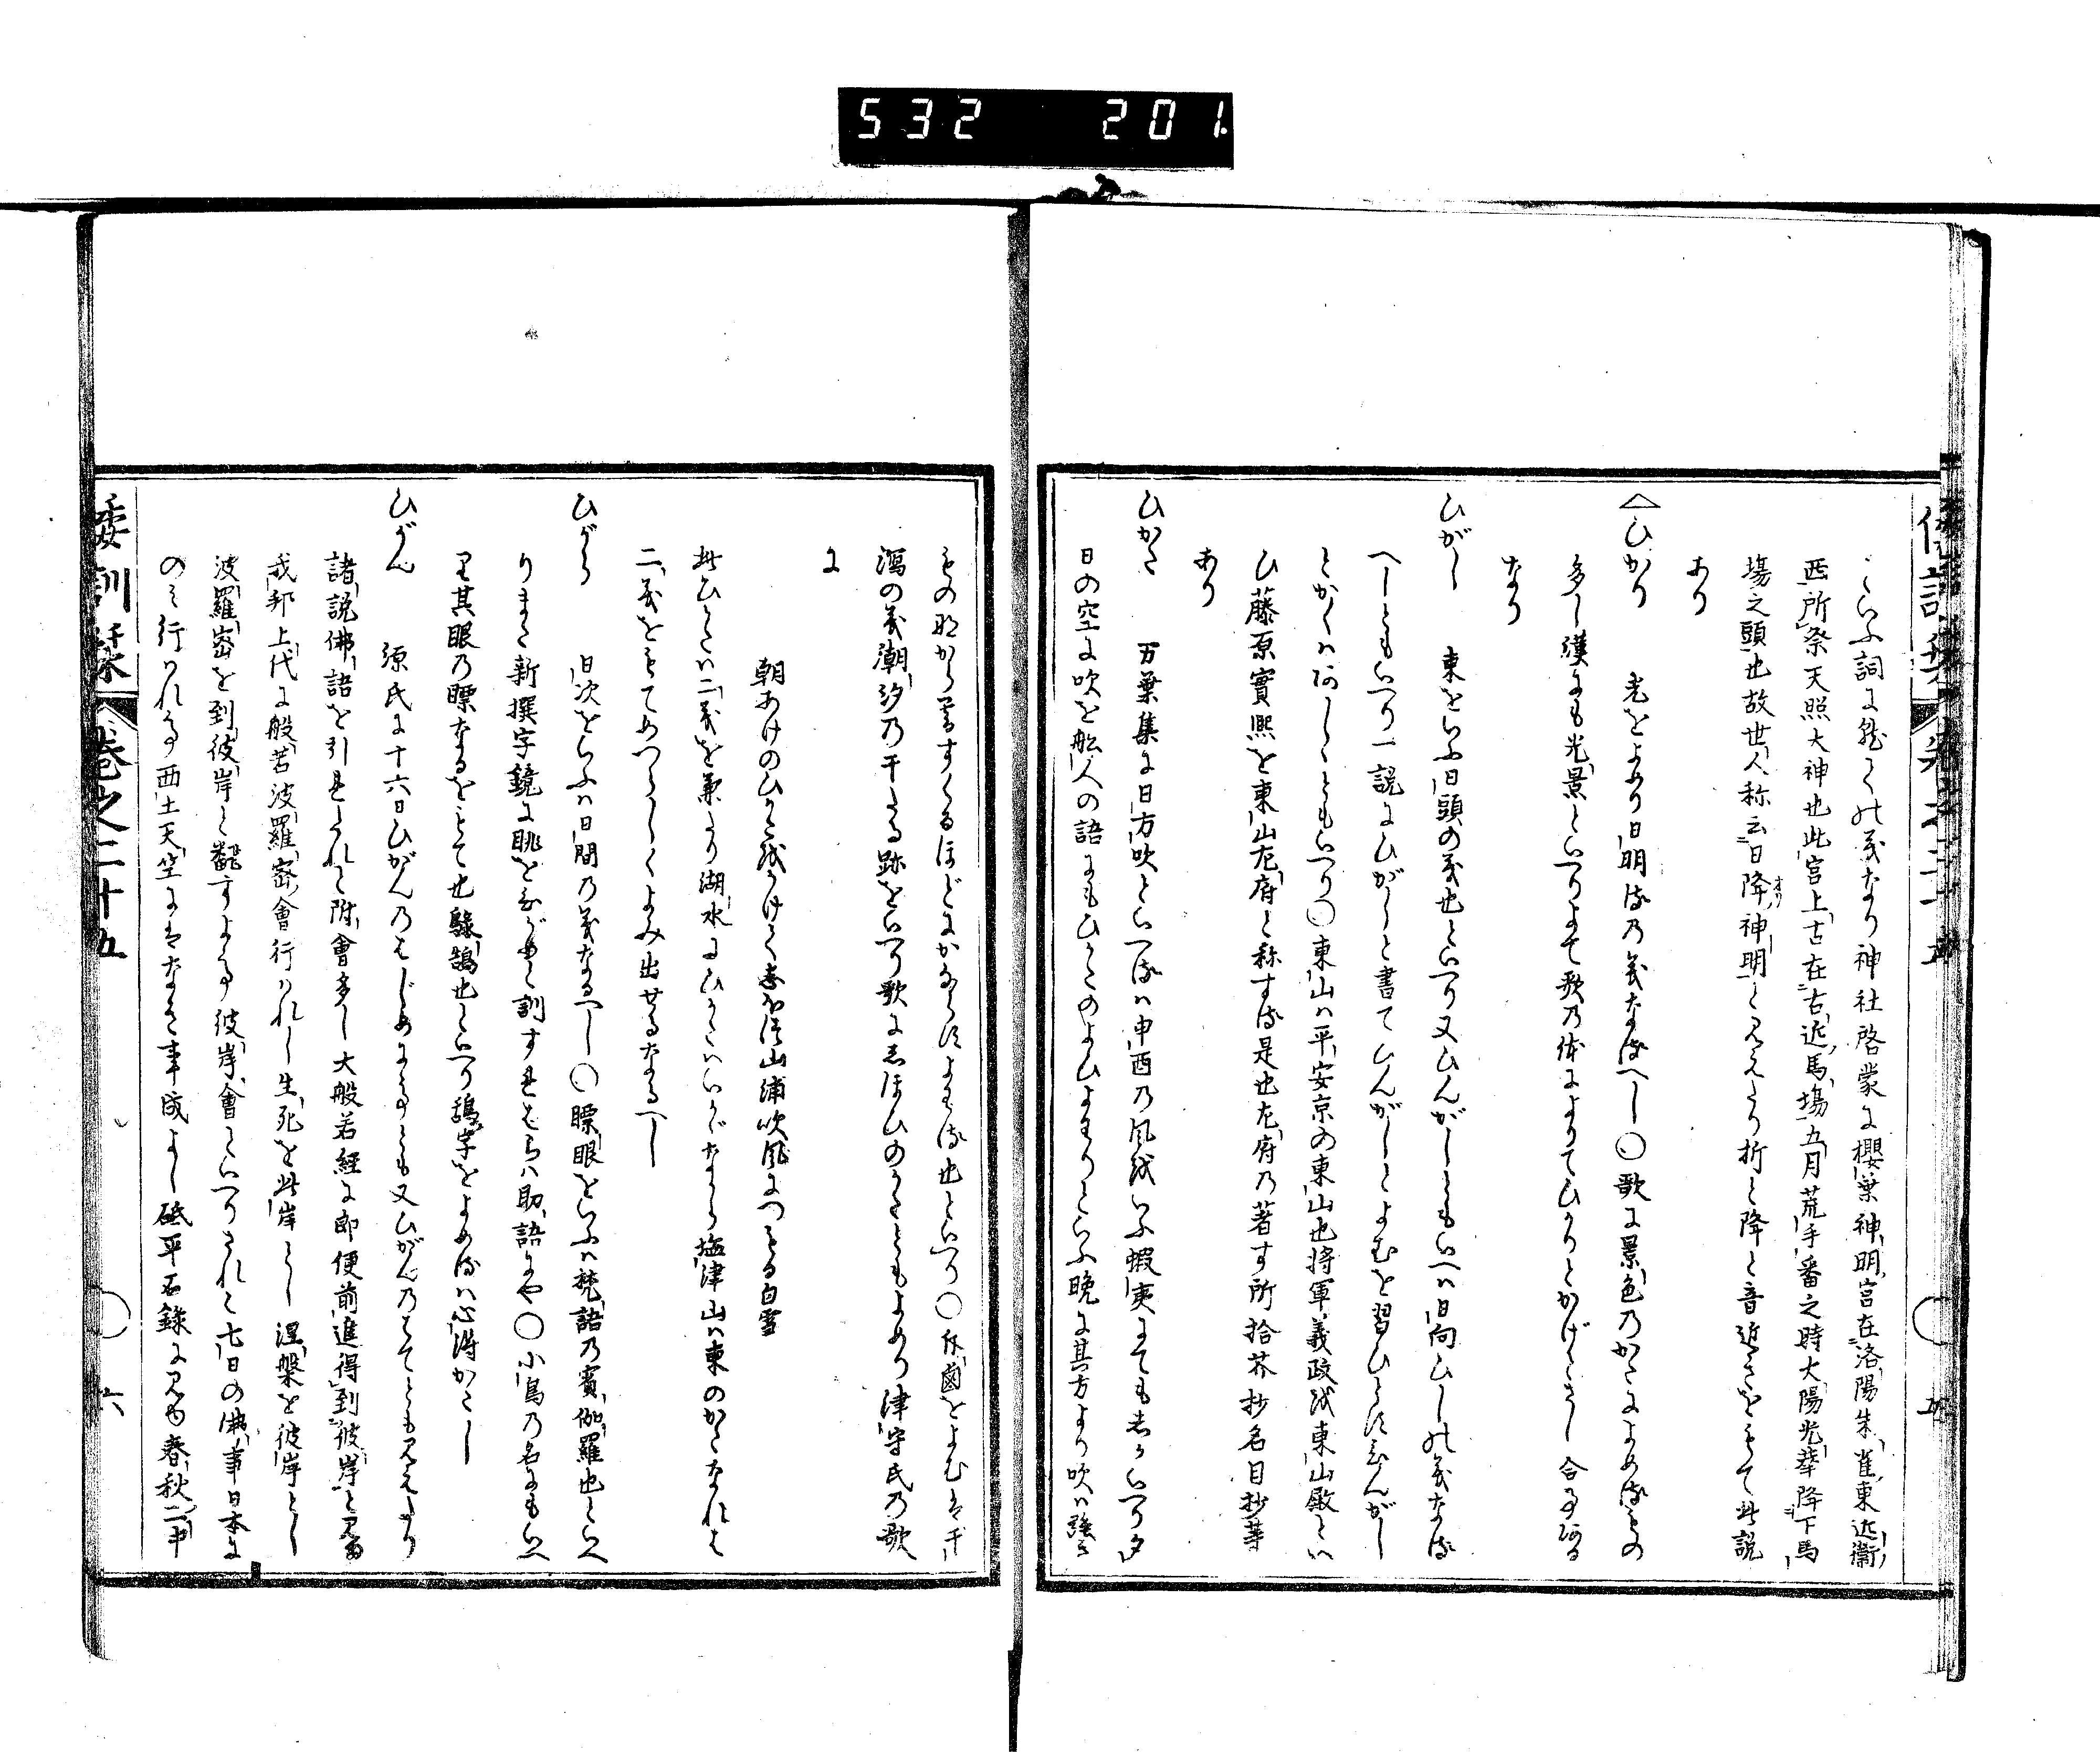 532 201
といふ詞に就ての義なり神社啓蒙に櫻葉神明宮在洛陽朱雀東近衛
西所祭天照大神也此宮上古在右近馬場五月荒手番之時大陽光華降下馬
場之頭也故世人称云日降神明と見えたり折と降と音近きをもて此説
あり
ひかり 光をよめり日明るの義なるへし○歌に景色のかたによめるもの
多し漢にも光景といへりよて歌の体によりてひかりとかげとさし合事ある
なり
ひがし 東をいふ日頭の義也といへり又ひんがしともいへは日向ひしの義なる
へしともいへり一説にひがしと書てひんがしとよむを習ひとすひんがし
とかくはあしゝともいへり○東山は平安京の東山也将軍義政を東山殿とい
ひ藤原實熙を東山左府と称する是也左府の著す所拾芥抄名目抄等
あり
ひかた 万葉集に日方吹といへるは申酉の風をいふ蝦夷にても志かいへり夕
日の空に吹を舩人の語にもひかたのよひよわりといふ晩に其方より吹は強き
ものながら夢すぐるほどにかならすよわる也といへり○斥鹵をよむは干
潟の義潮汐の干たる跡をいへり歌に志ほひのかたともよめり津守氏の歌
に
朝あけのひかたをかけて志ほつ山浦吹風につもる白雪
此ひかたは二義を兼たり湖水にひかたはいかゞなから塩津山は東のかたなれは
二義をもてめつらしくよみ出せるなるへし
ひがら 日次をいふは日間の義なるへし○瞟眼をいふは梵語の賓伽羅也といへ
りまた新撰字鏡に眺をひがめと訓すれはらは助語にや○小鳥の名にもいへ
り其眼の瞟なるをもて也騐鵠也といへり鴲字をよめるは心得かたし
ひがん 源氏に十六日ひがんのはじめにてとも又ひがんのはてとも見えたり
諸説佛語を引たれと附會多し大般若経に即便前進得到彼岸と見ゆ
我邦上代に般若波羅密會行はれし生死を此岸とし涅槃を彼岸とし
波羅密を到彼岸と飜すよて彼岸會といへりされと七日の佛事日本に
のミ行はれて西土天竺にはなき事成よし砥平石録に見ゆ春秋二中
倭訓栞 巻之二十五 五
倭訓栞 巻之二十五 六